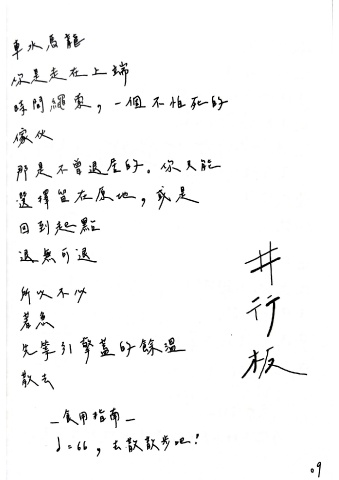 車水馬龍
你是走在上端
時間繩索，一個不怕死的
傢伙
那是不曾退屋的。你只能
選擇留在原地，或是
回到起點
退無可退
所以不必
著急
先等引擎蓋的餘溫
散去
—食用指南—
♩=66，去散散步吧！
#行板
09